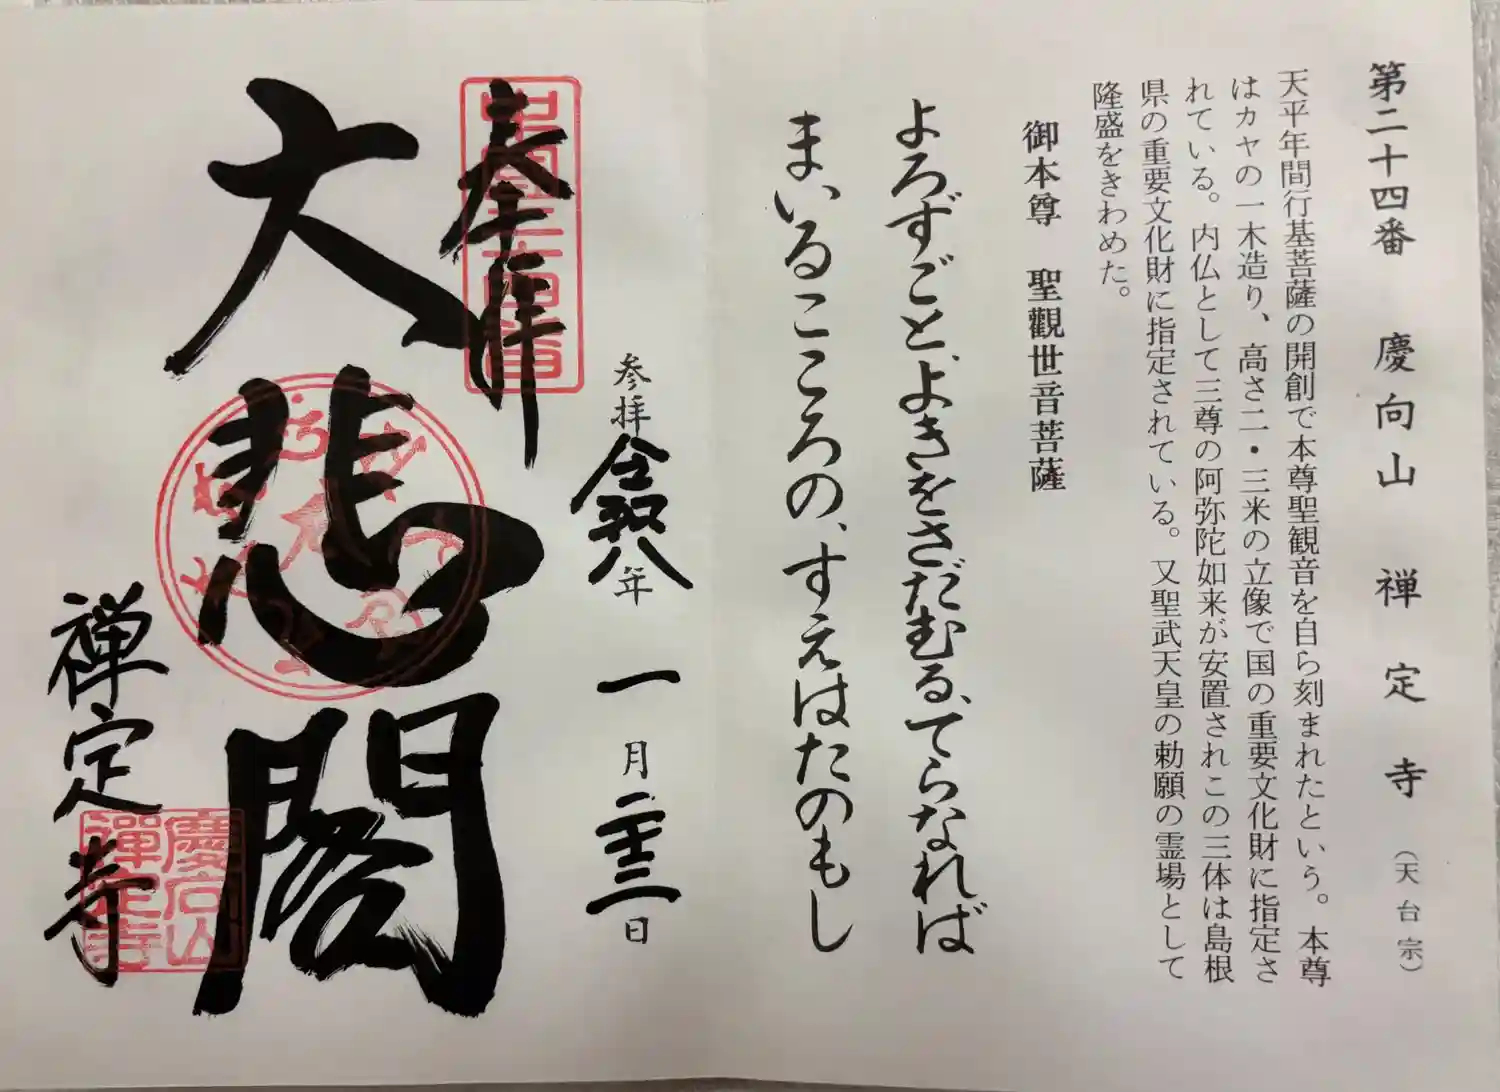 第二十四番 慶向山 禅定寺 (天台宗)
天平年間行基菩薩の開創で本尊聖観音を自ら刻まれたという。本尊
はカヤの一木造り、高さ二・三米の立像で国の重要文化財に指定さ
れている。内仏として三尊の阿弥陀如来が安置されこの三体は島根
県の重要文化財に指定されている。又聖武天皇の勅願の霊場として
隆盛をきわめた。
御本尊 聖觀世音菩薩
よろずごと、よきをさだむる、てらなれば
まいるこころの、すえはたのもし
参拝令和八年 一月二十三日
奉拝
大悲閣
禅定寺
慶向山
禅定寺